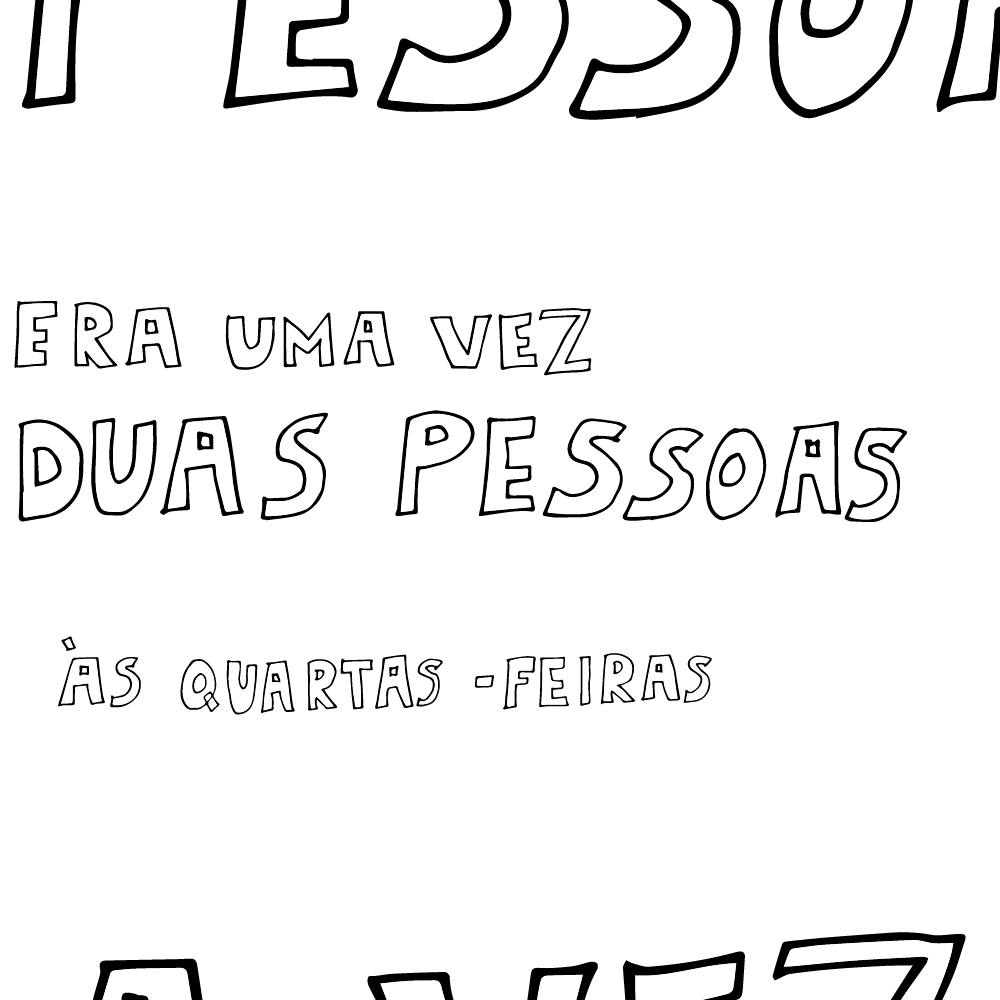 PESSOA
ERA UMA VEZ
DUAS PESSOAS
ÀS QUARTAS -FEIRAS
A VEZ